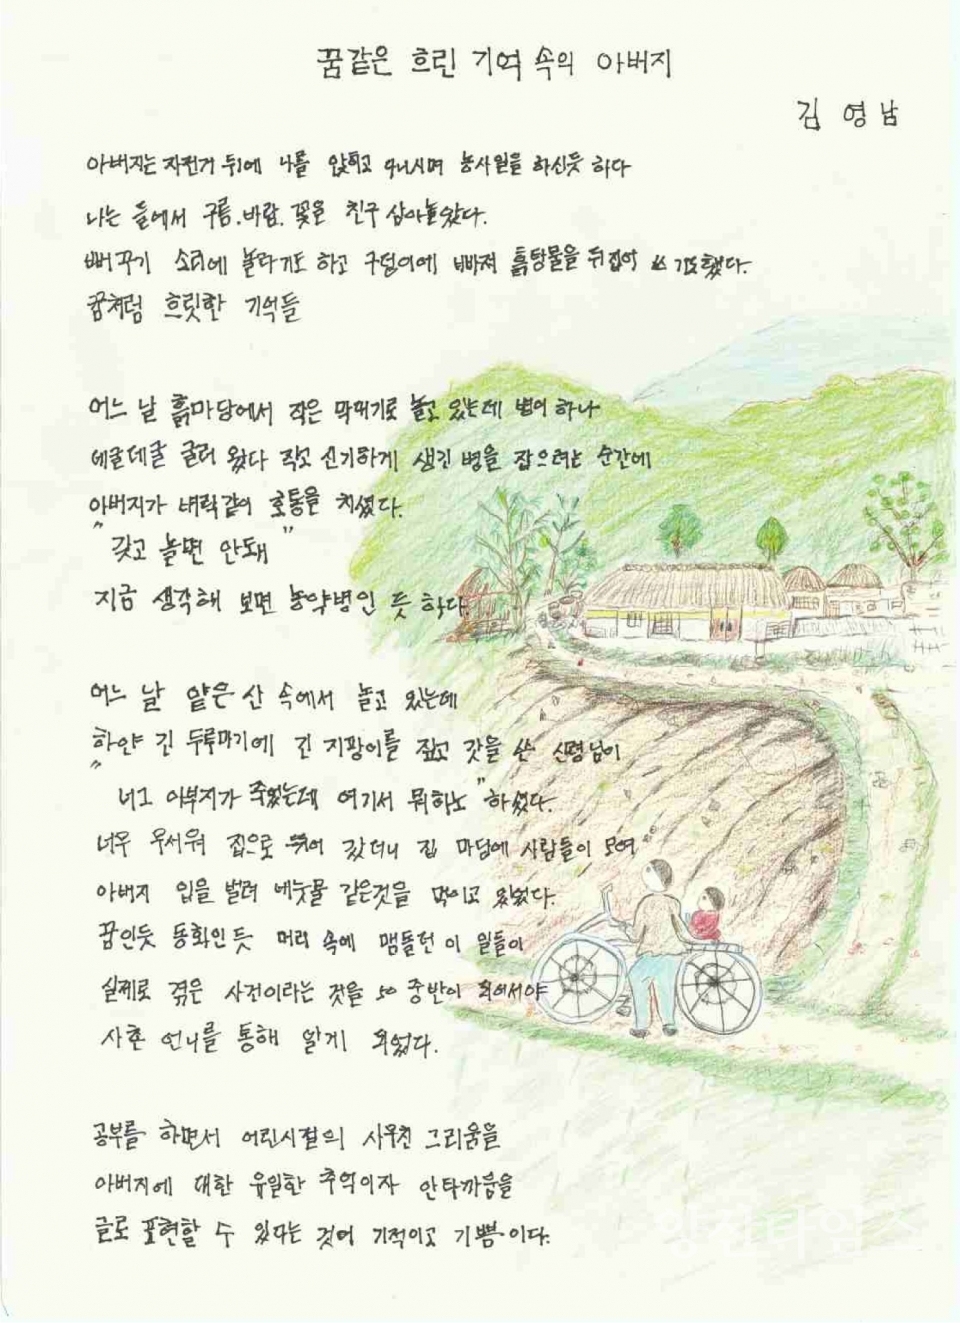 꿈같은 흐린 기억 속의 아버지
김영남
아버지는 자전거 뒤에 나를 앉히고 다니시며 농사일을 하신듯 하다
나는 들에서 구름.바람.꽃을 친구 삼아놀았다.
뻐꾸기 소리에 놀라기도 하고 구덩이에 빠져 흙탕물을 뒤집어 쓰기도했다.
꿈처럼 흐릿한 기억들
어느 날 흙마당에서 작은 막대기로 놀고 있는데 병이 하나
데굴데굴 굴러 왔다 작고 신기하게 생긴 병을 잡으려는 순간에
아버지가 벼락같이 호통을 치셨다.
"갖고 놀면 안돼"
지금 생각해 보면 농약병인 듯 하다.
어느 날 얕은 산 속에서 놀고 있는데
하얀 긴 두루마기에 긴 지팡이를 짚고 갓을 쓴 신령님이
"너그 아부지가 죽었는데 여기서 뭐하노" 하셨다.
너무 무서워 집으로 뛰어 갔더니 집 마당에 사람들이 모여
아버지 입을 벌려 비눗물 같은것을 먹이고 있었다.
꿈인듯 동화인듯 머리 속에 맴돌던 이 일들이
실제로 겪은 사건이라는 것을 50 중반이 되어서야
사촌 언니를 통해 알게 되었다.
공부를 하면서 어린시절의 사무친 그리움을
아버지에 대한 유일한 추억이자 안타까움을
글로 표현할 수 있다는 것이 기적이고 기쁨이다.